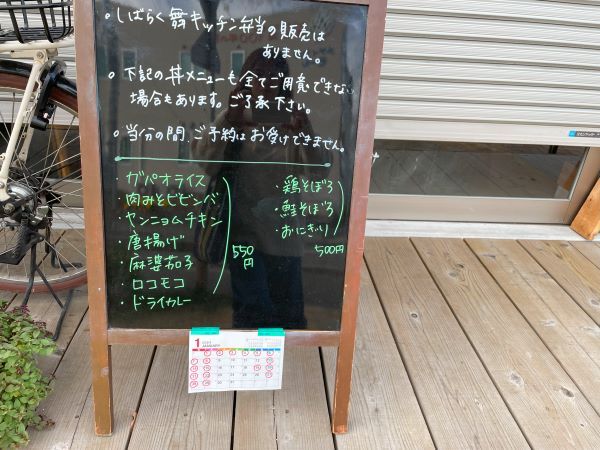 。しばらく舞キッチン弁当の販売は
ありません。
。下記の丼メニューも全てご用意できない
場合もあります。ご了承下さい。
。当分の間、ご予約はお受けできません。
・ガパオライス
・肉みそビビンバ
・ヤンニョムチキン
・唐揚げ
・麻婆茄子
・ロコモコ
・ドライカレー
550
円
・鶏そぼろ
・鮭そぼろ
・おにぎり
500円
1
JANUARY